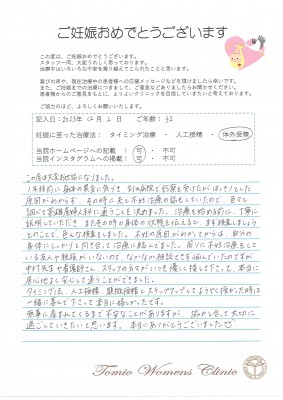 ご妊娠おめでとうございます
この度は、ご妊娠おめでとうございます。
スタッフ一同、大変うれしく思っております。
治療中はいろいろな不安を乗り越えてこられたことと思います。
喜びの声や、現在治療中の患者様への応援メッセージなどを頂けましたら幸いです。
また、ご妊娠までの治療につきまして、ご意見などございましたらお聞かせください。
患者様からのご意見をもとに、よりよいクリニックを目指していきたいと考えております。
ご協力のほど、よろしくお願いいたします。
記入日：2023年 12月 2日 ご年齢：32
妊娠に至った治療法： タイミング治療 ・ 人工授精 ・ 体外受精
当院ホームページへの記載： 可 ・ 不可
当院インスタグラムへの掲載： 可 ・ 不可
この度は大変お世話になりました。
1年程前に身体の異変に気づき
原因がわからず、その時に夫と不妊治療の話もしていたので、色々と
調べて富雄産婦人科に通うことを決めました。治療を始める前に、丁寧に
説明していただき
とのことで、色んな検査をしました。不妊の原因がわかってからは、自分の
身体にしっかりと向き合って治療に臨んでました。周りに不妊治療をして
いる友人や親族がいないので、なかなか相談できず悩んでいたのですが
中村先生や看護師さん、スタッフの方々がいつも優しく接して下さって、本当に
居心地よく安心して通うことができました。
タイミング法、人工授精、顕微授精とステップアップしてようやく授かった時は
一緒に喜んで下さって本当に嬉しかったです。
無事に産まれてくるまで不安なことがありますが、
過ごしていきたいと思います。本当にありがとうございました
Tomio Womens Clinic